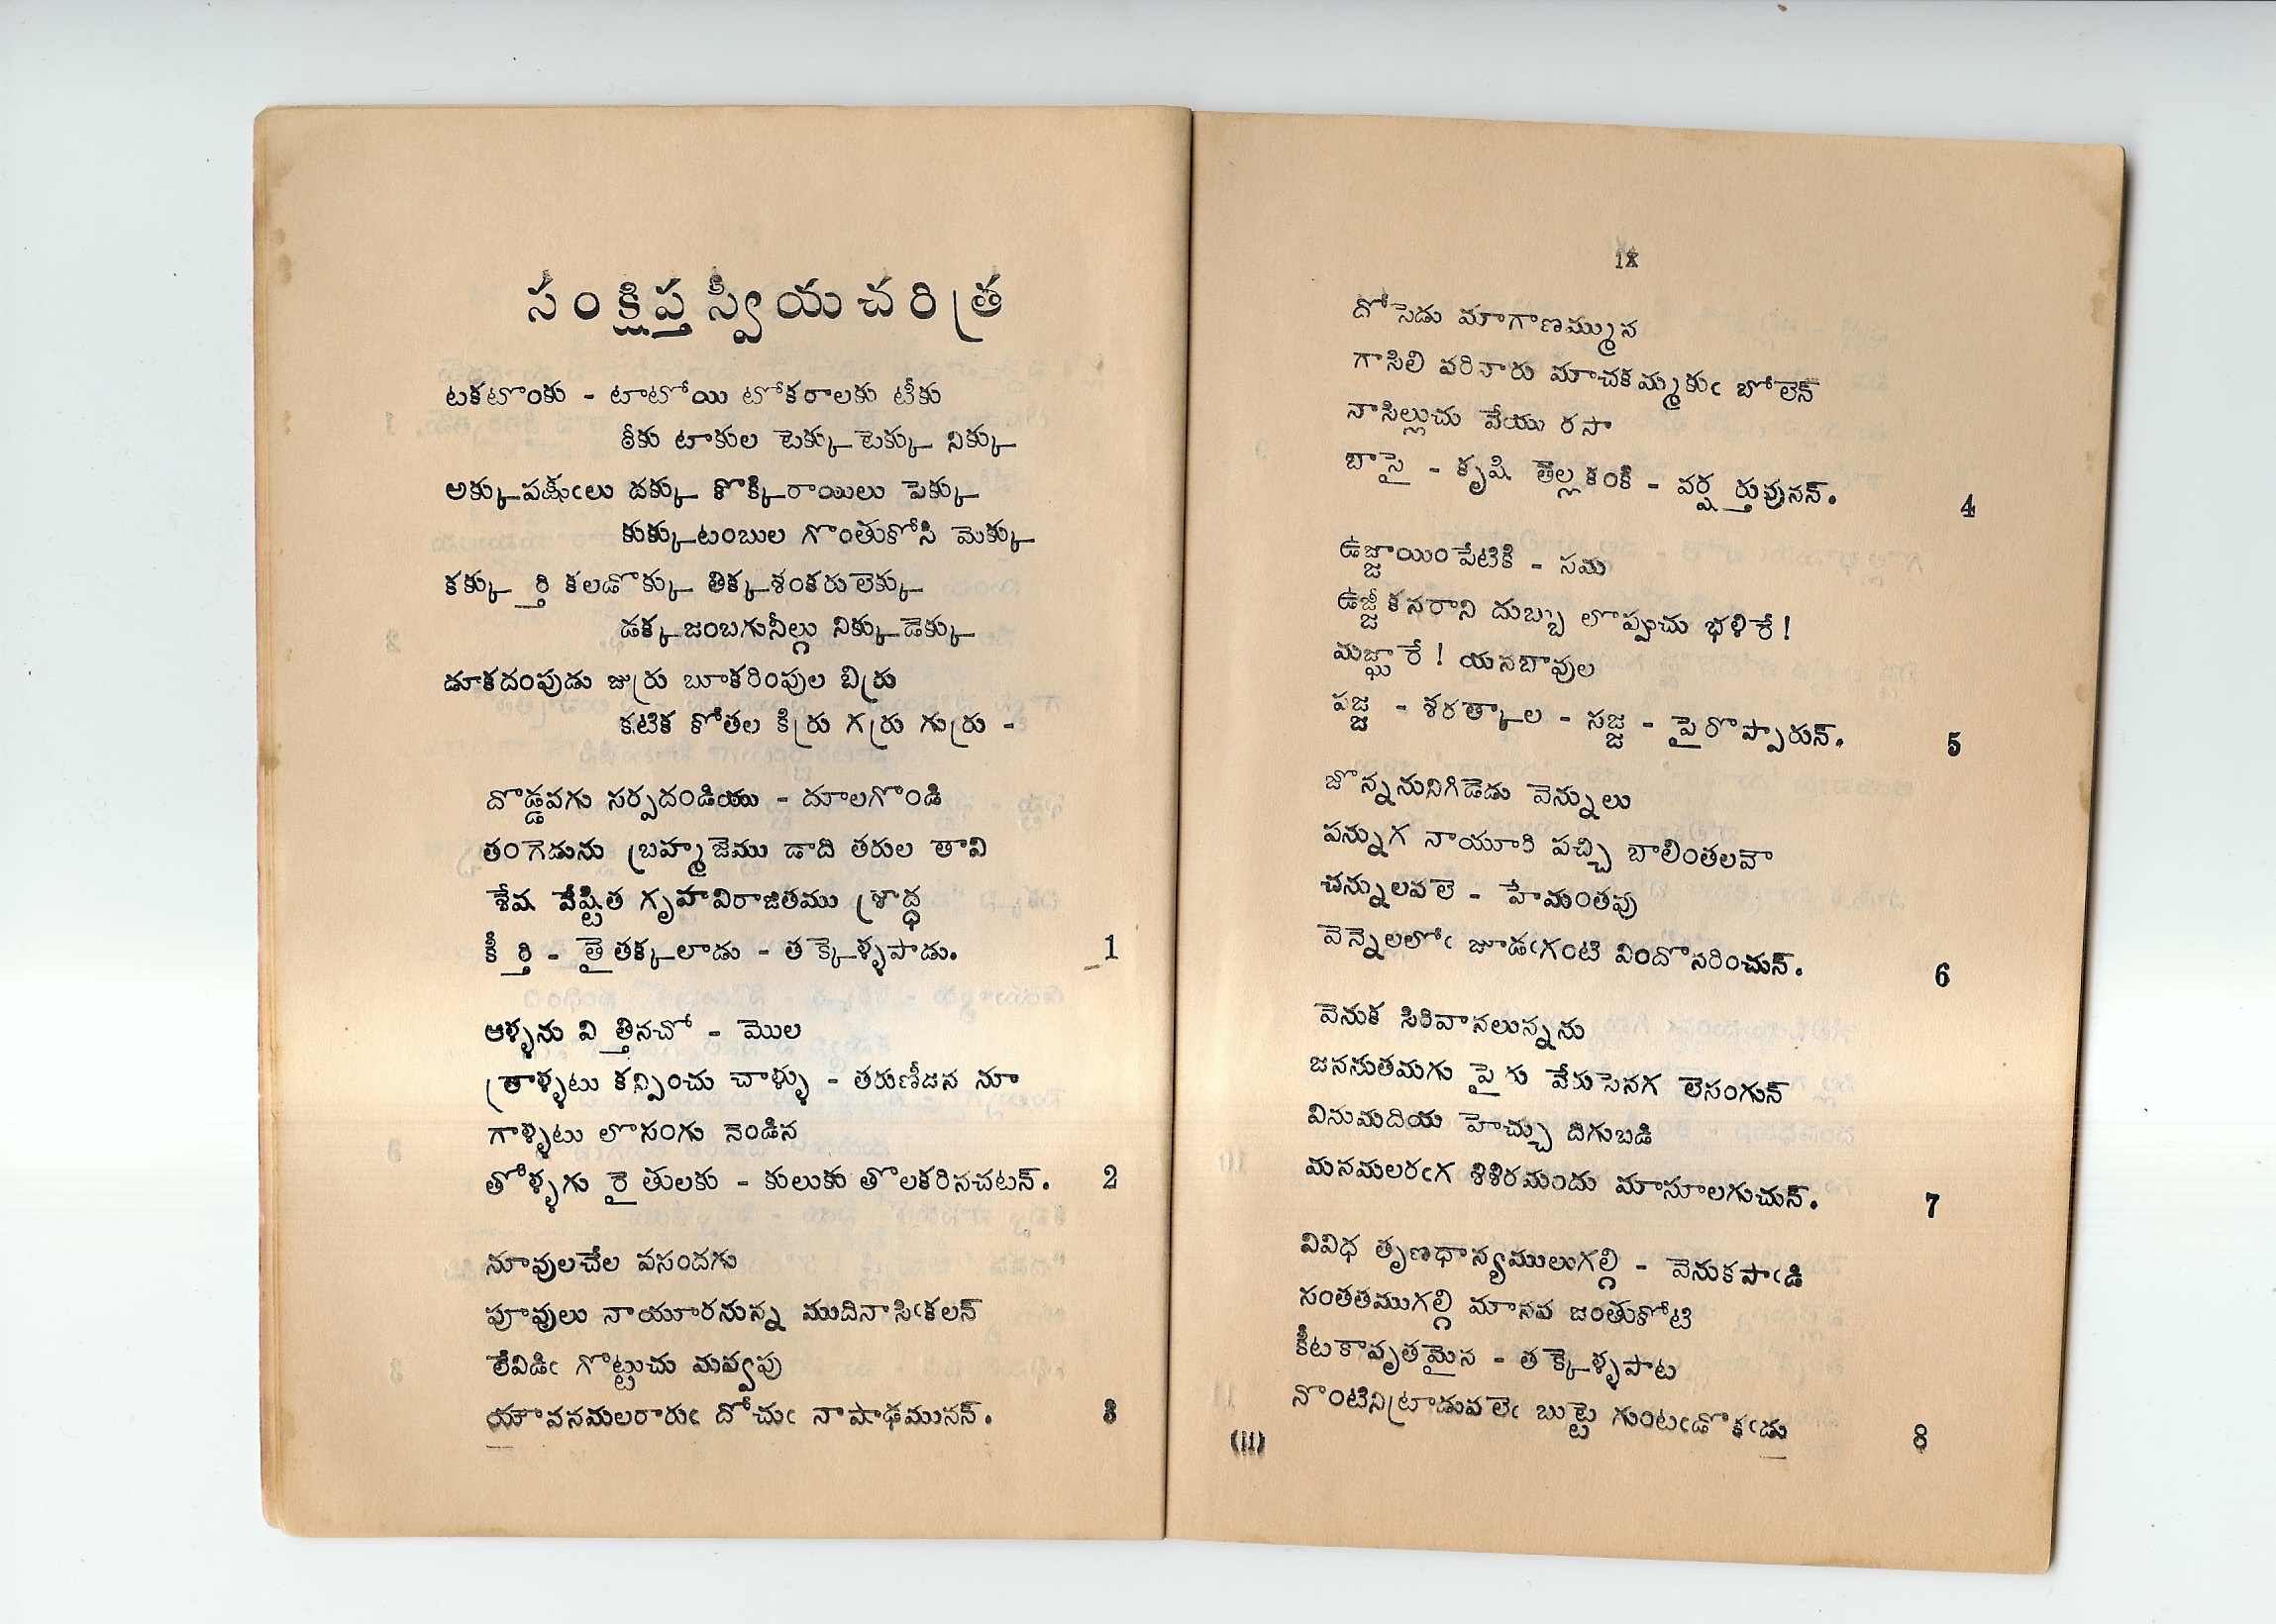 సంక్షిప్త స్వీయ చరిత్ర
టకటొంకు - టాటోయి టోకరాలకు టీకు
ఠీకు టాకుల టెక్కు టెక్కు నిక్కు
అక్కుపక్షుఁలు దక్కు కొక్కిరాయిలు పెక్కు
కుక్కుటంబుల గొంతుకోసి మెక్కు
కక్కుర్తి కలడొక్కు తిక్కశంకరులెక్కు
డక్కజంబగునీల్గు నిక్కుడెక్కు
డూకదంపుడు జుర్రు బూకరింపుల బిర్రు
కటిక కోతల కిర్రు గర్రు గుర్రు -
దొడ్డవగు సర్పదండియు - దూలగొండి
తంగెడును బ్రహ్మజెము డాది తరుల తావి
శేష వేష్టిత గృహవిరాజితము శ్రాద్ధ
కీర్తి - తైతక్కలాడు - తక్కెళ్ళపాడు. 1
ఆళ్ళను విత్తినచో - మొల
త్రాళ్ళటు కన్పించు చాళ్ళు - తరుణీజన నూ
గాళ్ళటు లొసంగు నెండిన
తోళ్ళగు రైతులకు - కులుకు తొలకరినచటన్. 2
నూవులచేల వసందగు
పూవులు నాయూరనున్న ముదినాసిఁకలన్
ఠేవిడిఁ గొట్టుచు మవ్వపు
యౌవనమలరారుఁ దోచుఁ నాపాఢమునన్. 3
ix
దోసెడు మాగాణమ్మున
గాసిలి వరినారు మాచకమ్మకుఁ బోలెన్
నాసిల్లుచు వేయు రసా
బాసై - కృషి తెల్లకంకి - వర్షర్తువునన్. 4
ఉజ్జాయింపేటికి - సమ
ఉజ్జీ కనరాని దుబ్బు లొప్పుచు భళిరే!
మజ్ఝారే! యనబావుల
పజ్జ - శరత్కాల - సజ్జ - పైరొప్పారున్. 5
జొన్ననునిగిడెడు వెన్నులు
పన్నుగ నాయూరి పచ్చి బాలింతలవా
చన్నులవలె - హేమంతపు
వెన్నెలలోఁ జూడఁగంటి విందొనరించున్. 6
వెనుక సిరివానలున్నను
జననుతమగు పైగు వేరుసెనగ లెసంగున్
వినుమదియ హెచ్చు దిగుబడి
మనమలరఁగ శిశిరమందు మాసూలగుచున్. 7
వివిధ తృణధాన్యములుగల్గి - వెనుకపాఁడి
సంతతముగల్గి మానవ జంతుకోటి
కీటకావృతమైన - తక్కెళ్ళపాట
నొంటినిట్రాడువలెఁ బుట్టె గుంటఁడొకఁడు 8
(ii)